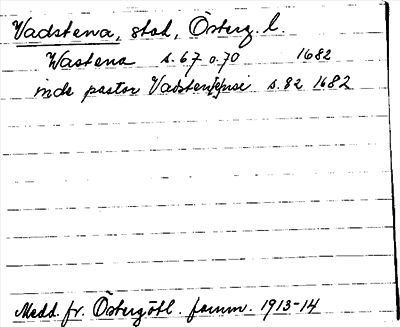 Vadstena, stad, Österg. l.
Wastena s. 67 o. 70 1682
pastor Vadsten[s]ensi s. 82 1682
Medd. fr. Östergötl. fornm. 1913-14